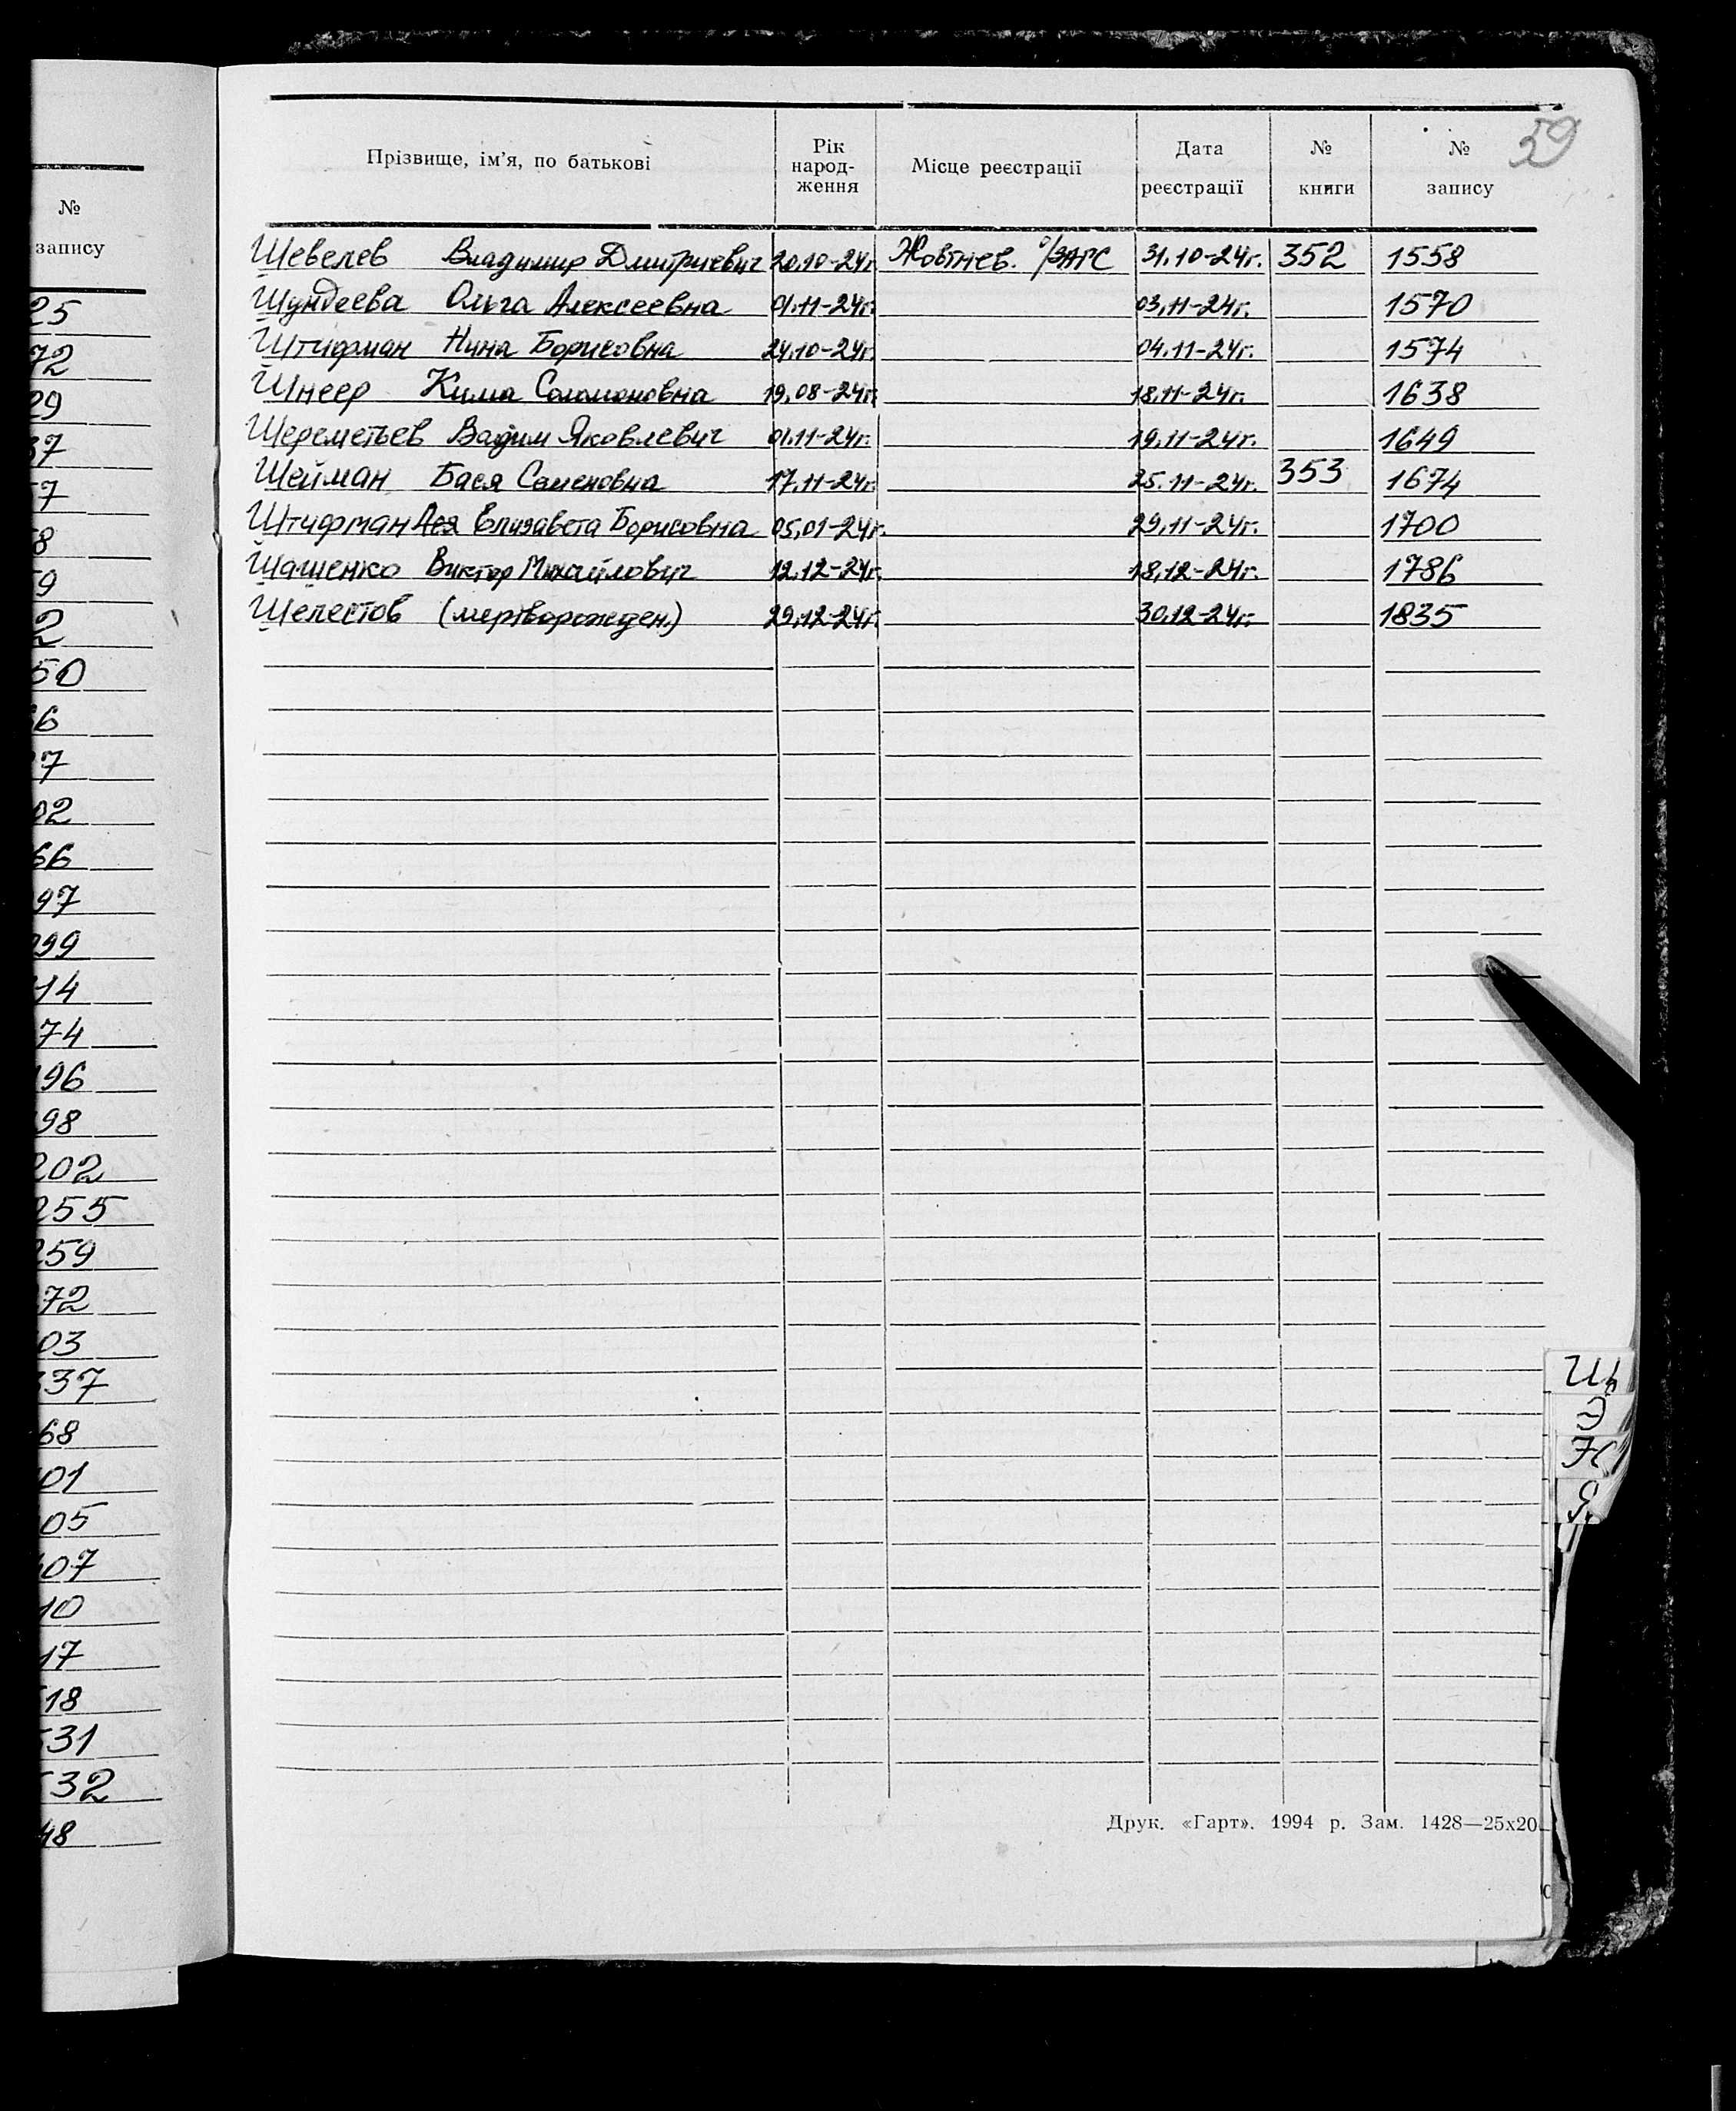 №
запису
25
72
29
37
57
8
59
2
50
66
27
02
66
97
299
14
74
196
98
202
255
259
72
03
337
68
01
05
407
10
17
518
531
532
48
59
Прізвище, ім’я, по батькові Рік народ-ження Місце реєстрації Дата реєстрації № книги № запису
Шевелев Владимир Дмитриевич 20.10-24г. Жовтнев. о/ЗАГС 31.10-24г. 352 1558
Шундеева Ольга Алексеевна 01.11-24г. 03.11-24г. 1570
Штифман Нина Борисовна 24.10-24г. 04.11-24г. 1574
Шнеер Кима Соломоновна 19.08-24г. 18.11-24г. 1638
Шереметьев Вадим Яковлевич 01.11-24г. 19.11-24г. 1649
Шейман Бася Семеновна 17.11-24г. 25.11-24г. 353 1674
Штифман Ася Елизавета Борисовна 05.01-24г. 29.11-24г. 1700
Шашенко Виктор Михайлович 12.12-24г. 18.12-24г. 1786
Шелестов (мертворожден.) 29.12-24г. 30.12-24г. 1835
Щ
Э
Ю
Я
Друк. «Гарт». 1994 р. Зам. 1428—25х20